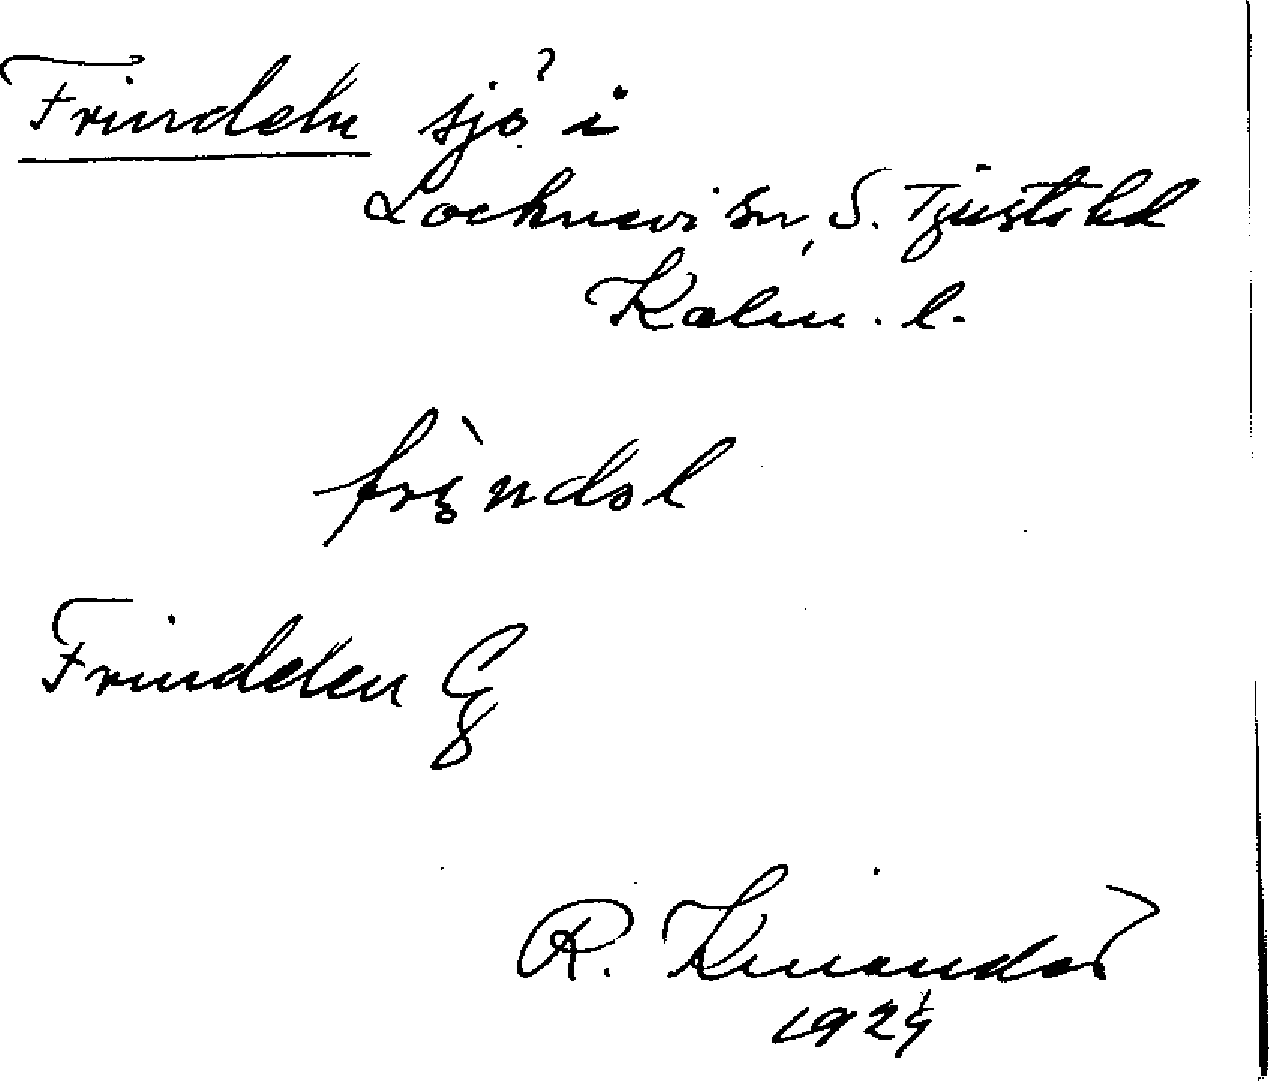 Frindeln sjö i
Locknevi sn, S. Tjusts hd
Kalm. l.
frindəl
Frindelen
R. Kinander
1924